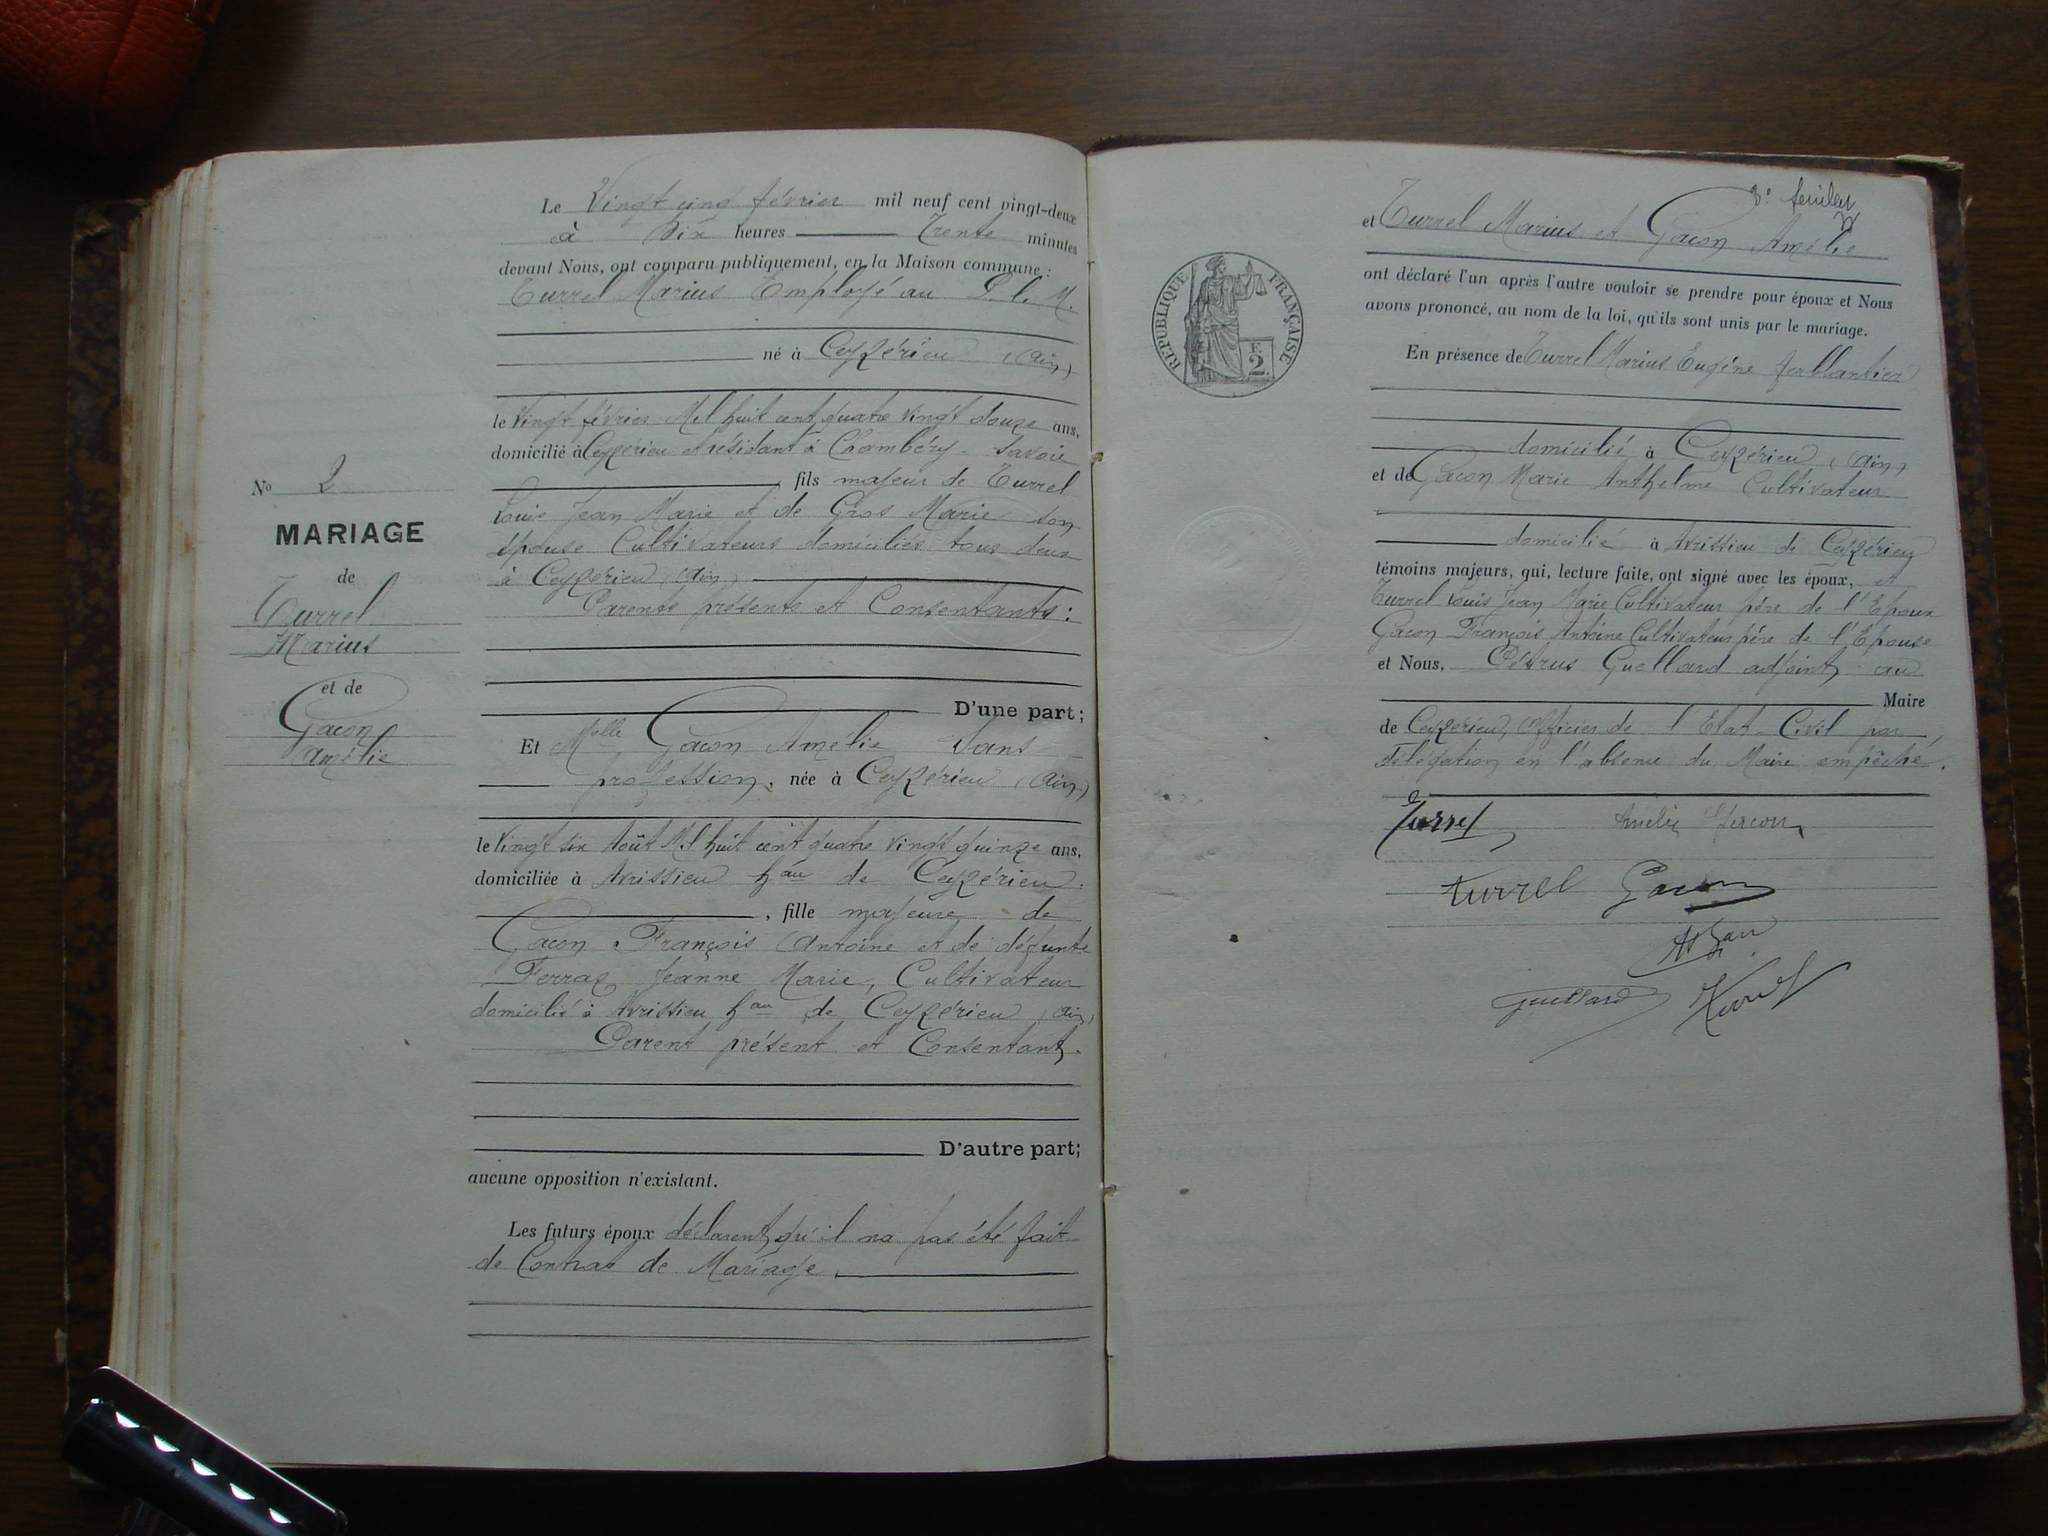 Le Vingt cinq février mil neuf cent vingt-deux
à heures Trente minutes
devant Nous, ont comparu publiquement, en la Maison commune :
Turrel Marius Employé au P. L. M.
né à Ceyzérieu (Ain)
le Vingt février Mil huit cent quatre vingt douze ans,
domicilié à Ceyzérieu et résidant à Chambéry - Savoie
, fils majeur de Turrel
Louis Jean Marie et de Gros Marie son
épouse Cultivateurs domiciliés tous deux
à Ceyzérieu (Ain)
Parents présents et Consentants :
D'une part ;
Et Melle Gacon Amélie Sans
profession, née à Ceyzérieu (Ain)
le Vingt six Août Mil huit cent quatre vingt quinze ans,
domiciliée à Avrissieu hau de Ceyzérieu.
, fille majeure de
Gacon François Antoine et de défunte
Ferraz Jeanne Marie, Cultivateur
domicilié à Avrissieu hau de Ceyzérieu (Ain)
Parent présent et Consentant.
D'autre part ;
aucune opposition n'existant.
Les futurs époux déclarent qu'il na pas été fait
de Contrat de Mariage.
No 2
MARIAGE
de
Turrel
Marius
et de
Gacon
Amélie
3e feuillet
et Turrel Marius et Gacon Amélie
ont déclaré l'un après l'autre vouloir se prendre pour époux et Nous
avons prononcé, au nom de la loi, qu'ils sont unis par le mariage.
En présence de Turrel Marius Eugène ferblantier
domicilié à Ceyzérieu (Ain)
et de Gacon Marie Anthelme Cultivateur
domicilié à Avrissieu de Ceyzérieu
témoins majeurs, qui, lecture faite, ont signé avec les époux, et
Turrel Louis Jean Marie Cultivateur père de l'Epoux
Gacon François Antoine Cultivateur père de l'Epouse
et Nous, Pétrus Guillard adjoint au
Maire
de Ceyzérieu, Officier de l'Etat-Civil par
délégation en l'absence du Maire empêché.
Turrel Amélie Gacon
Turrel Gacon
Guillard Turrel
RÉPUBLIQUE FRANÇAISE
F. 2